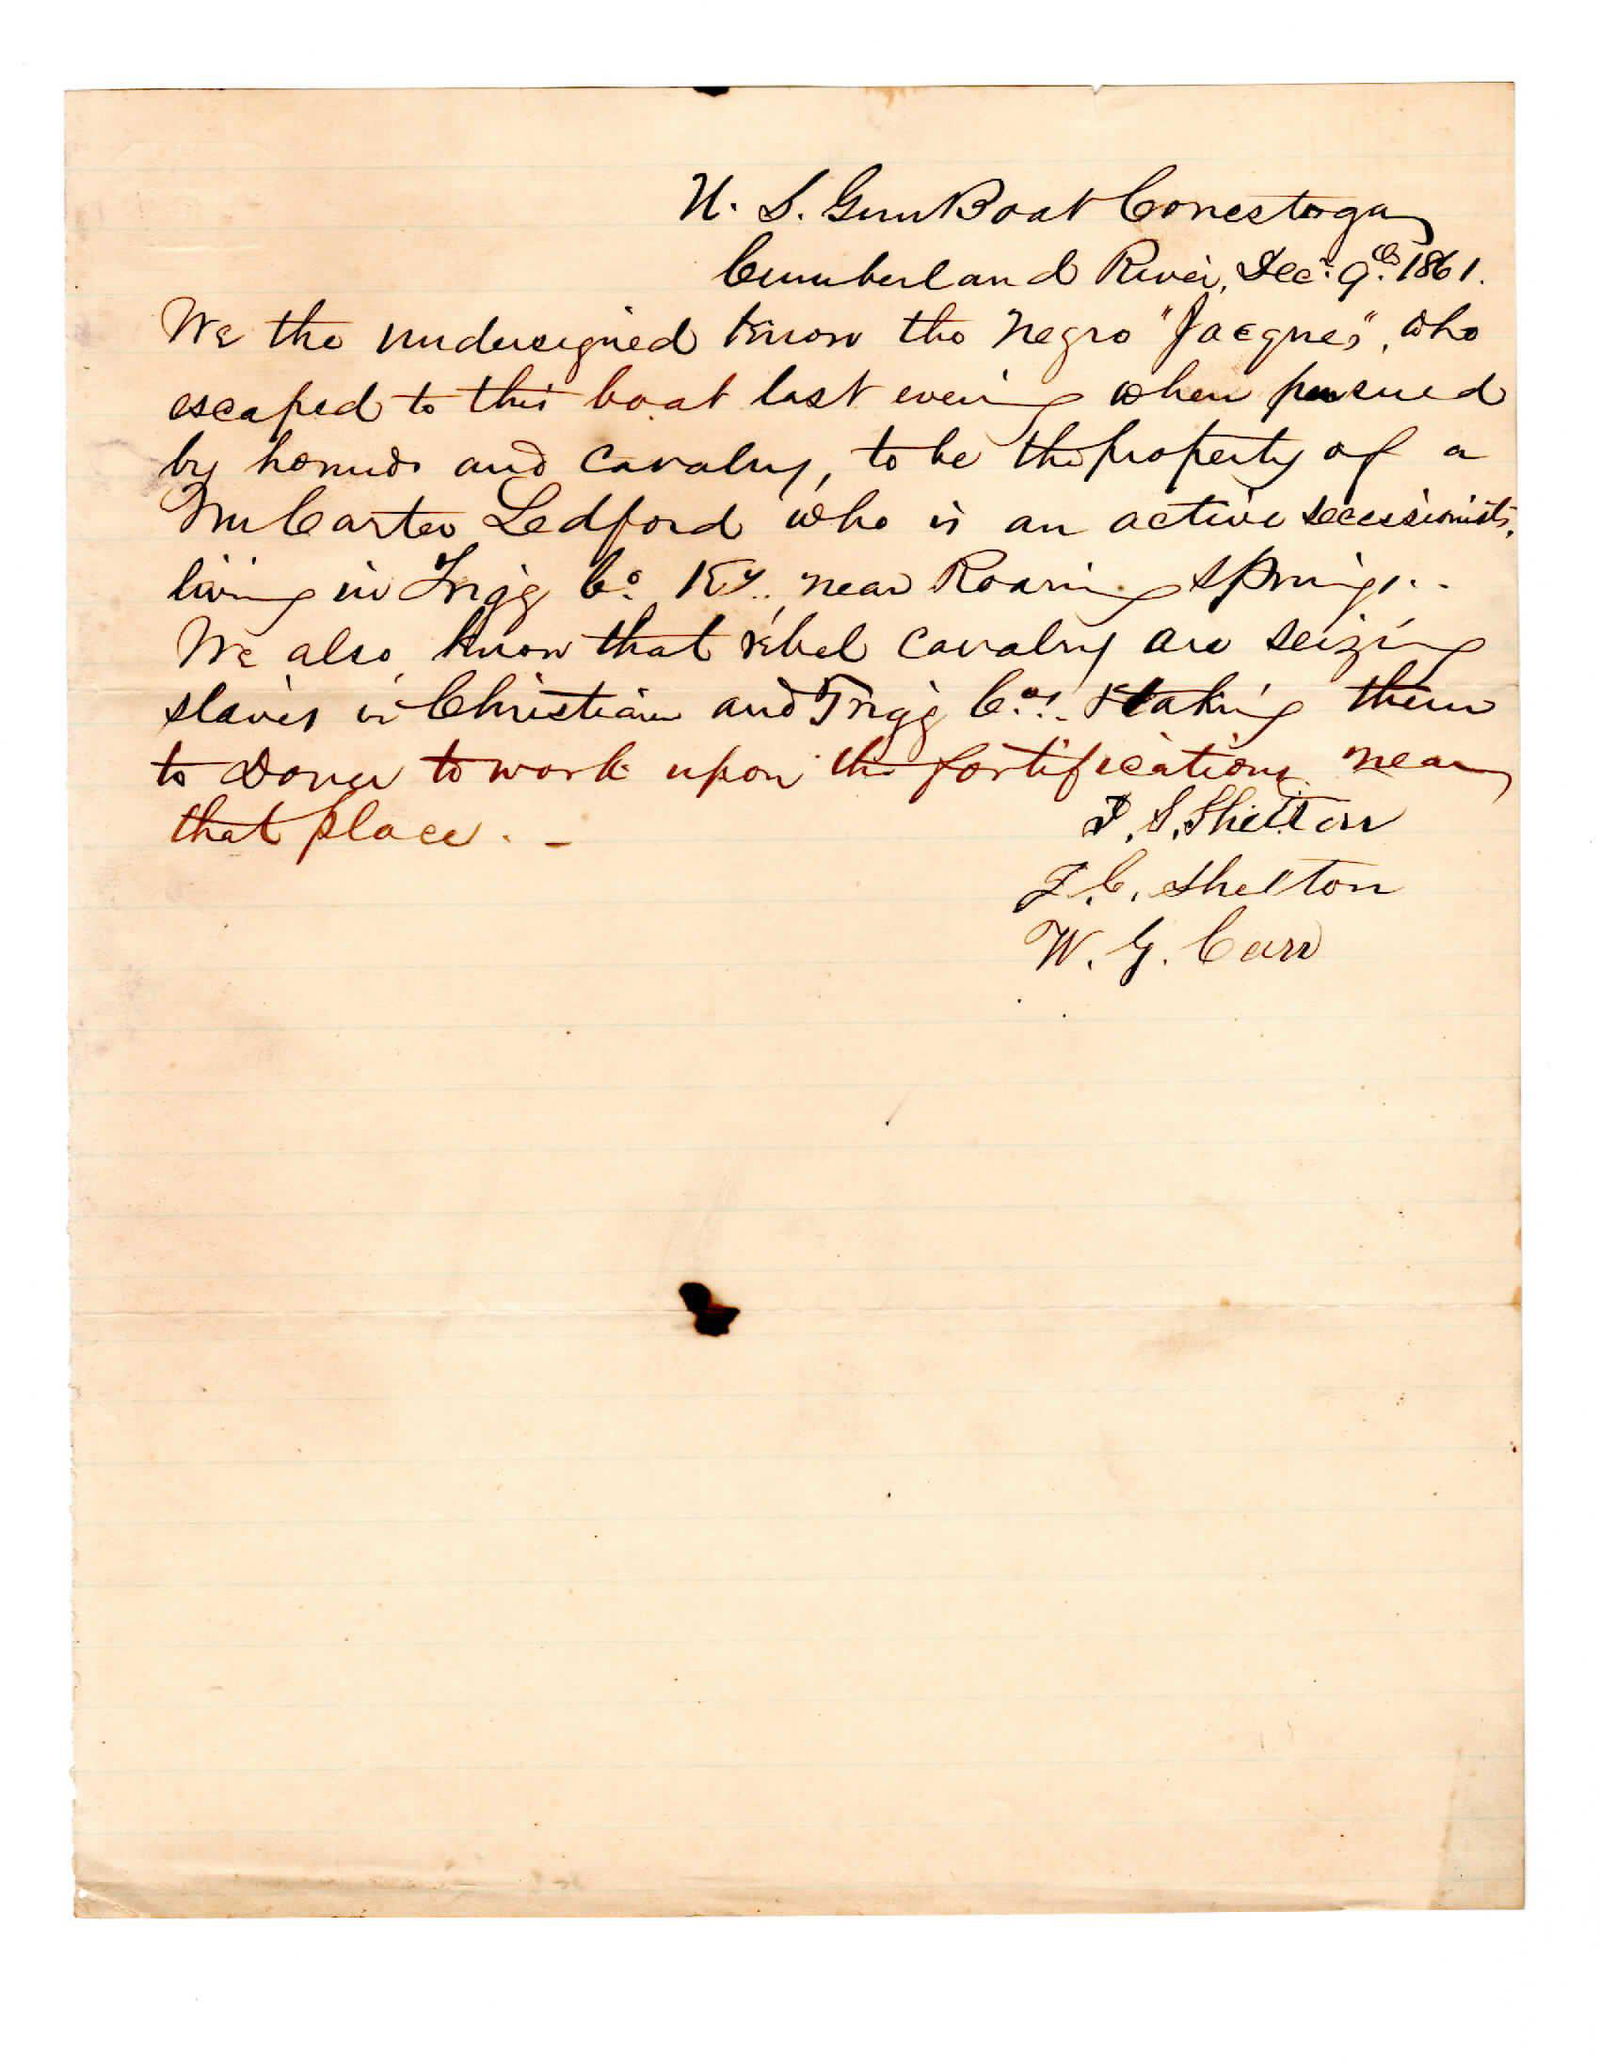 U. S. Gun Boat Conestoga
Cumberland River, Dec. 9th 1861.
We the undersigned know the negro "Jacques", who
escaped to this boat last evening when pursued
by hounds and cavalry, to be the property of a
Carter Ledford who is an active secessionist,
living in Trigg Co. Ky. near Roaring Springs. -
We also, know that rebel cavalry are seizing
slaves in Christian and Trigg Cos. & taking them
to Dover to work upon the fortifications near
that place. -
S. Shelton
C. Shelton
W. G. Carr